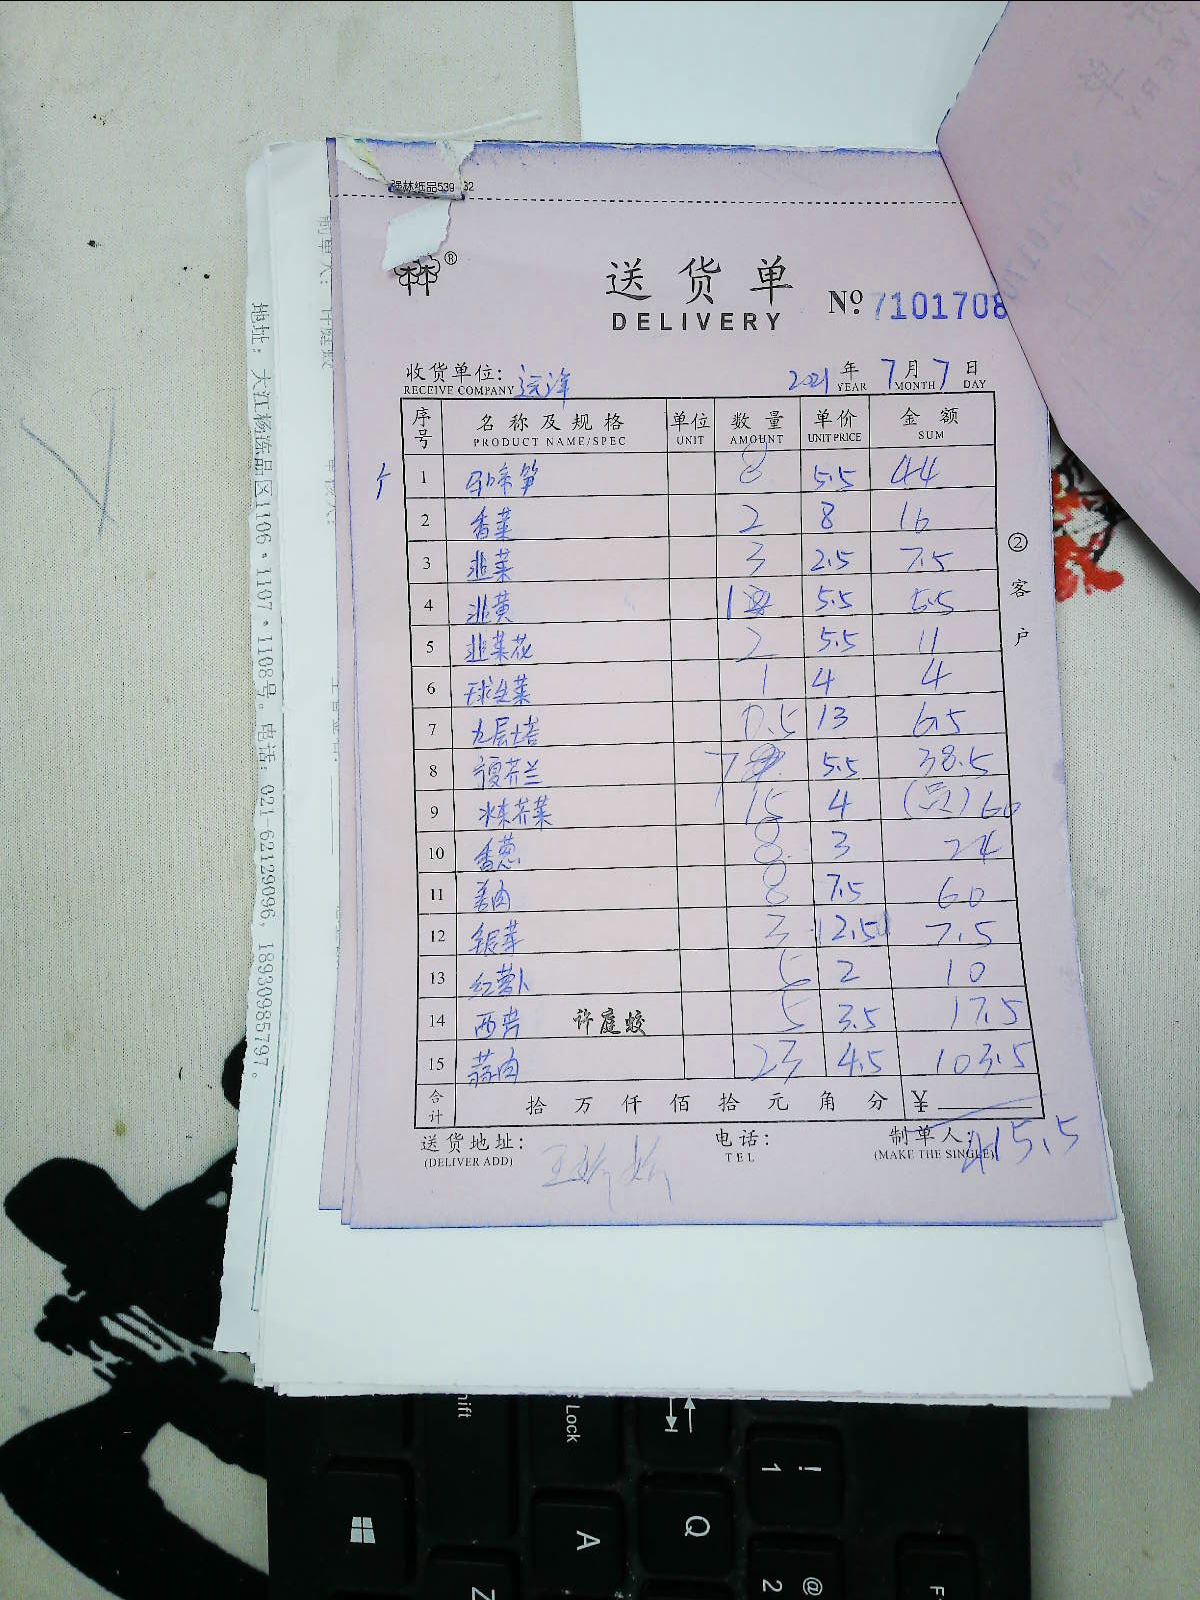 强林纸品539 32
®
送货单
DELIVERY
№ 7101708
收货单位: 远洋 2021 年 7 月 7 日
RECEIVE COMPANY YEAR MONTH DAY
序号 名称及规格 单位 数量 单价 金额
PRODUCT NAME/SPEC UNIT AMOUNT UNIT PRICE SUM
1 8 5.5 44
2 香菜 2 8 16
3 韭菜 3 2.5 7.5
4 韭黄 1 5.5 5.5
5 韭菜花 2 5.5 11
6 球生菜 1 4 4
7 九层塔 0.5 13 6.5
8 芥兰 7 5.5 38.5
9 芥菜 15 4 60
10 香葱 8 3 24
11 姜肉 8 7.5 60
12 3 2.5 7.5
13 红萝卜 5 2 10
14 西芹 许庭蛟 5 3.5 17.5
15 蒜肉 23 4.5 103.5
合计 拾 万 仟 佰 拾 元 角 分 ¥
415.5
送货地址: 电话: 制单人:
(DELIVER ADD) TEL (MAKE THE SINGLE)
② 客户
地址: 大江杨涷品区1106·1107·1108号。电话: 021-62129096, 18930985797。
Shift
Lock
! 1
Q
A
@ 2
Z
F